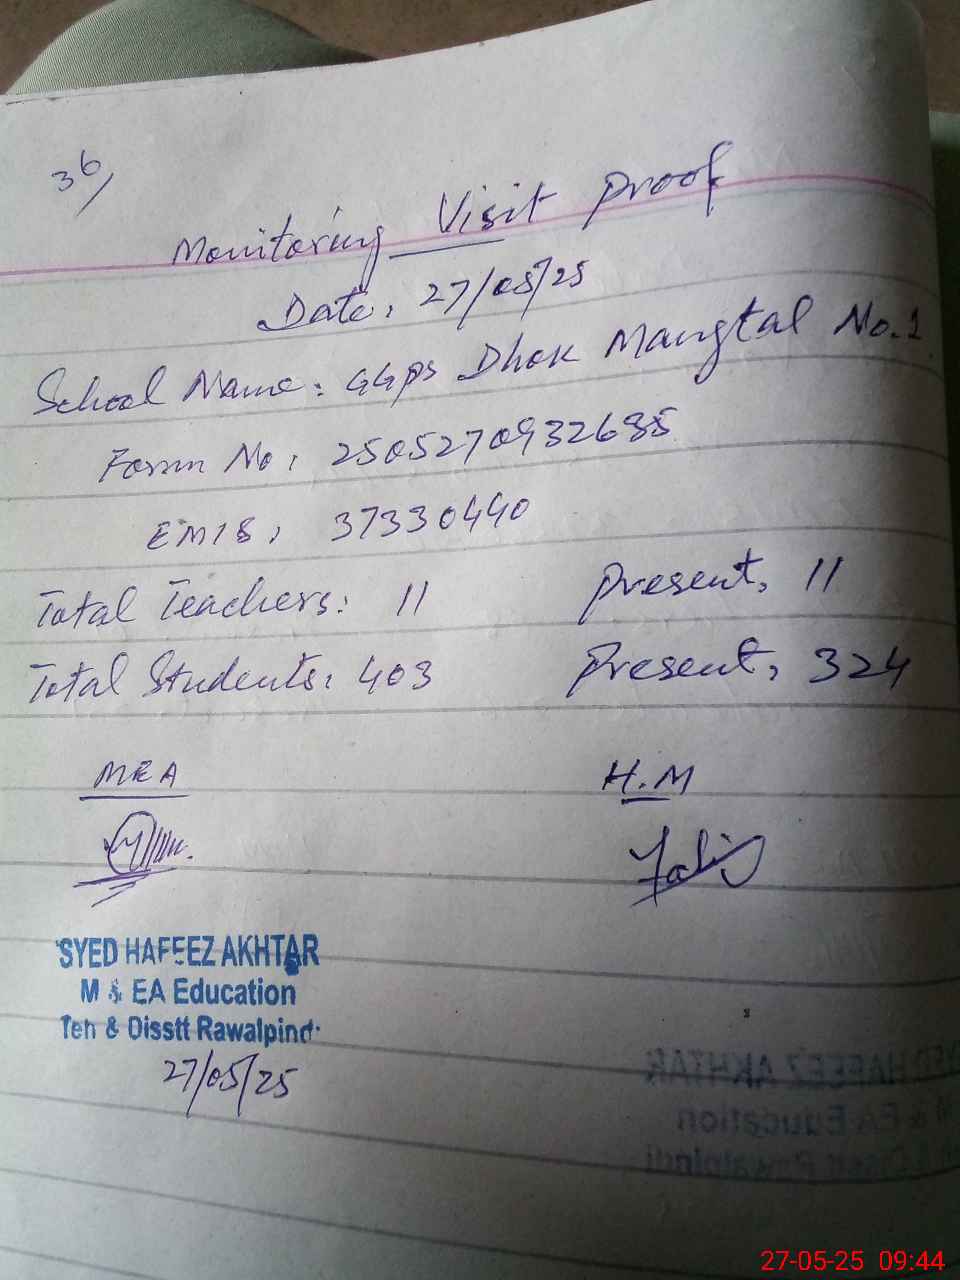 36/
Monitoring Visit Proof
Date: 27/05/25
School Name: GGPS Dhok Mangtal No.1
Form No: 2505270932685
EMIS: 37330440
Total Teachers: 11 Present, 11
Total Students: 403 Present, 324
MEA H.M
SYED HAFEEZ AKHTAR
M & EA Education
Teh & Disstt Rawalpindi
27/05/25
27-05-25 09:44